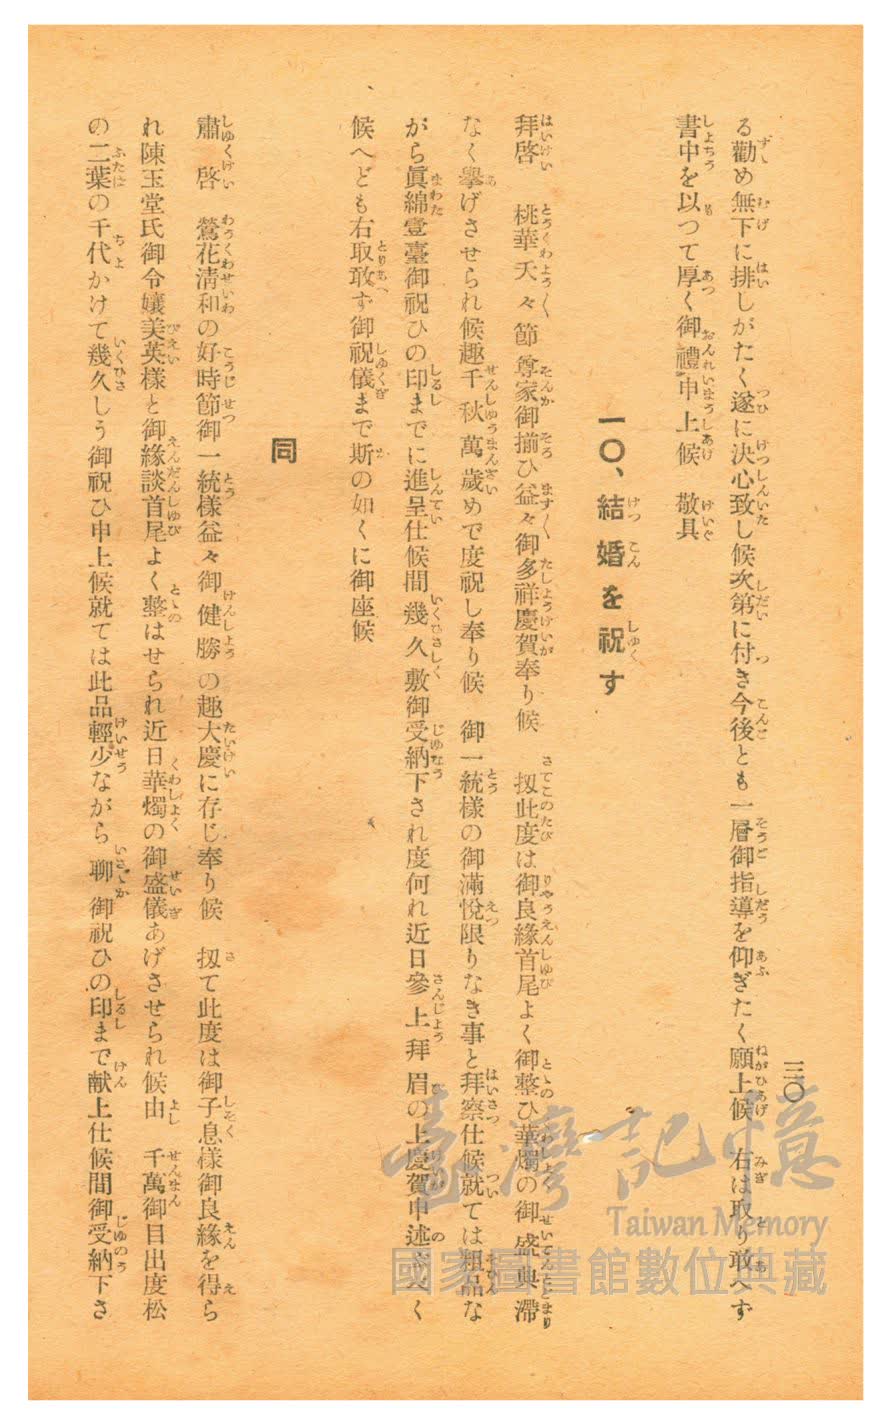 三〇
る勸め無下に排しがたく遂に決心致し候次第に付き今後とも一層御指導を仰ぎたく願上候　右は取り敢へず
書中を以つて厚く御禮申上候　敬具
一〇、結婚を祝す
拜啓　桃華夭々節尊家御揃ひ益々御多祥慶賀奉り候　扨此度は御良緣首尾よく御整ひ華燭の御盛典滯
なく擧げさせられ候趣千秋萬歲めで度祝し奉り候　御一統樣の御滿悅限りなき事と拜察仕候就ては粗品な
がら眞綿壹臺御祝ひの印までに進呈仕候間幾久敷御受納下され度何れ近日參上拜眉の上慶賀申述ぶべく
候へども右取敢ず御祝儀まで斯の如くに御座候
同
肅啓　鶯花淸和の好時節御一統樣益々御健勝の趣大慶に存じ奉り候　扨て此度は御子息樣御良緣を得ら
れ陳玉堂氏御令孃美英樣と御緣談首尾よく整はせられ近日華燭の御盛儀あげさせられ候由　千萬御目出度松
の二葉の千代かけて幾久しう御祝ひ申上候就ては此品輕少ながら聊御祝ひの印まで献上仕候間御受納下さ
臺灣記憶
Taiwan Memory
國家圖書館數位典藏